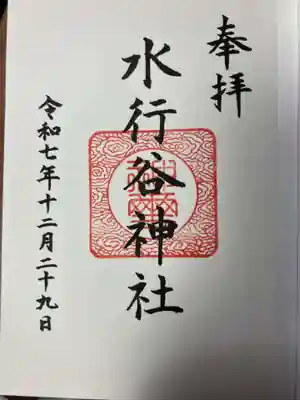 奉拝
水行谷神社
令和七年十二月二十九日